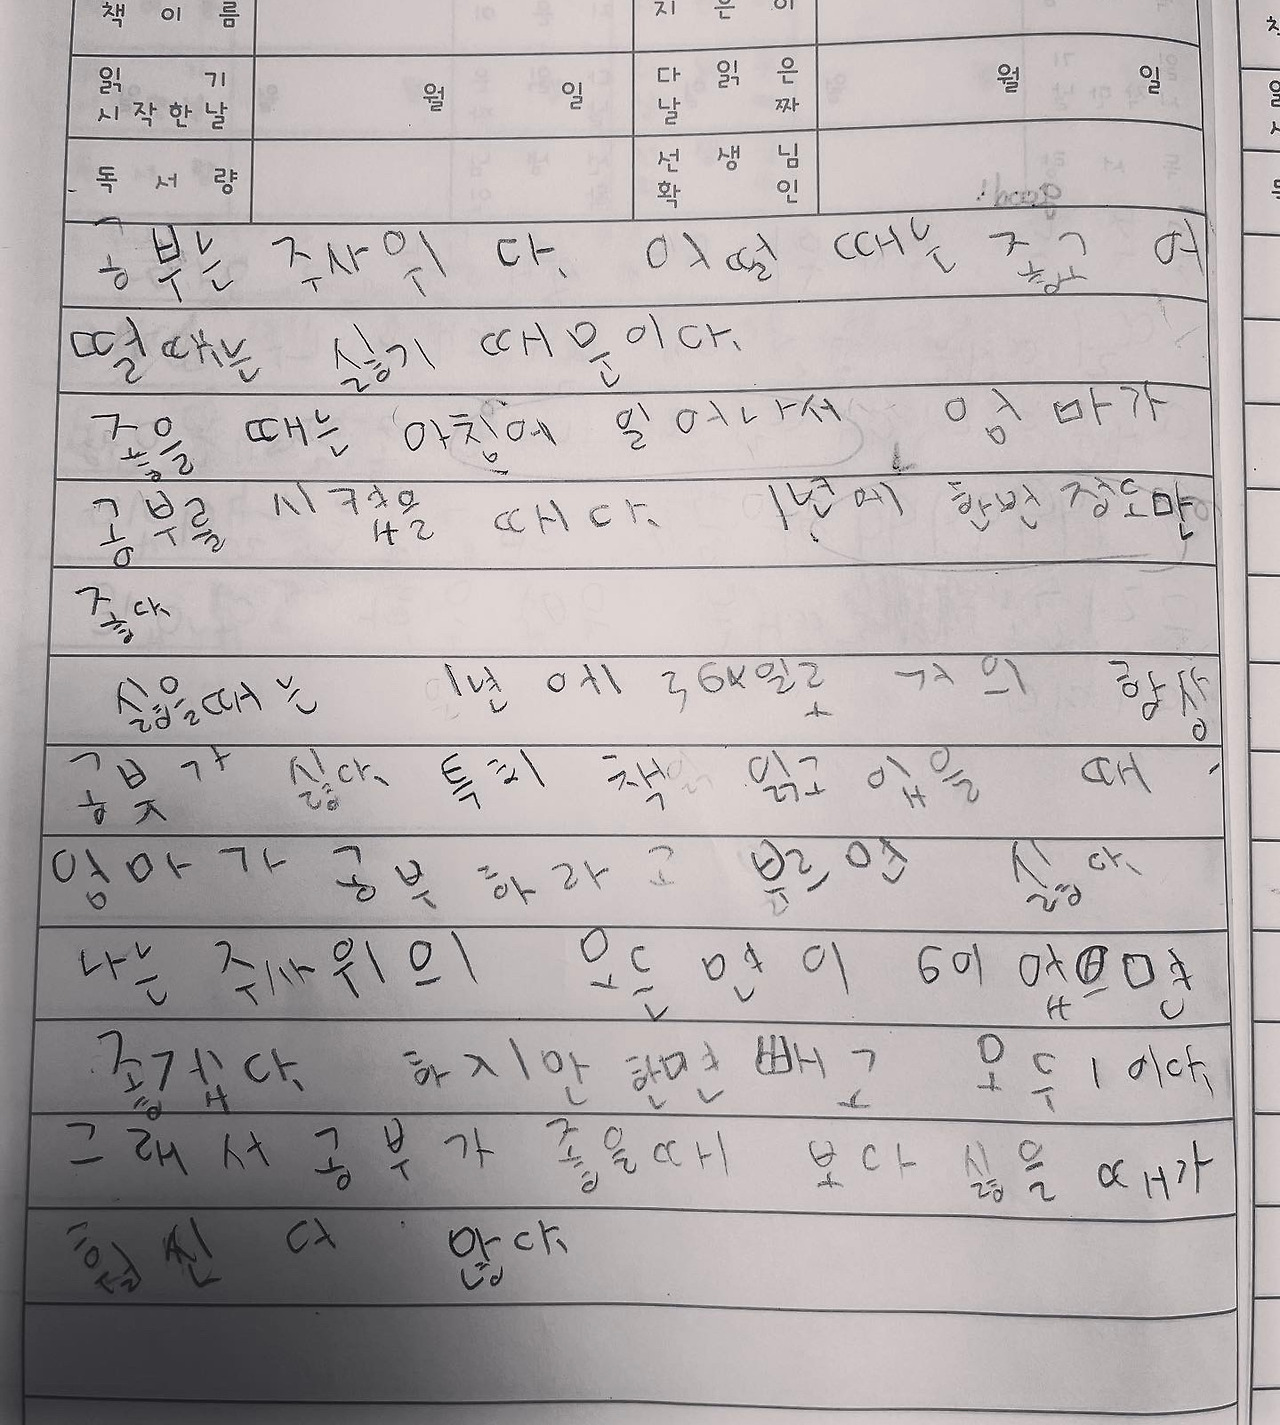 책 이 름 지 은 이
읽 기 시 작 한 날 월 일 다 읽 은 날 짜 월 일
독 서 량 선 생 님 확 인
공부는 주사위 다. 어떨 때는 좋고 어
떨때는 싫기 때문이다.
좋을 때는 아침에 일어나서 엄마가
공부를 시켰을 때다. 1년에 한번 정도만
좋다
싫을때는 1년 에 364일로 거의 항상
공붖가 싫다. 특히 책 읽고 있을 때
엄마가 공부하라고 부르면 싫다.
나는 주사위의 모든 면이 6이 었으면
좋겠다. 하지만 한면 빼고 모두 1 이다.
그래서 공부가 좋을때 보다 싫을 때가
훨씬 더 많다.